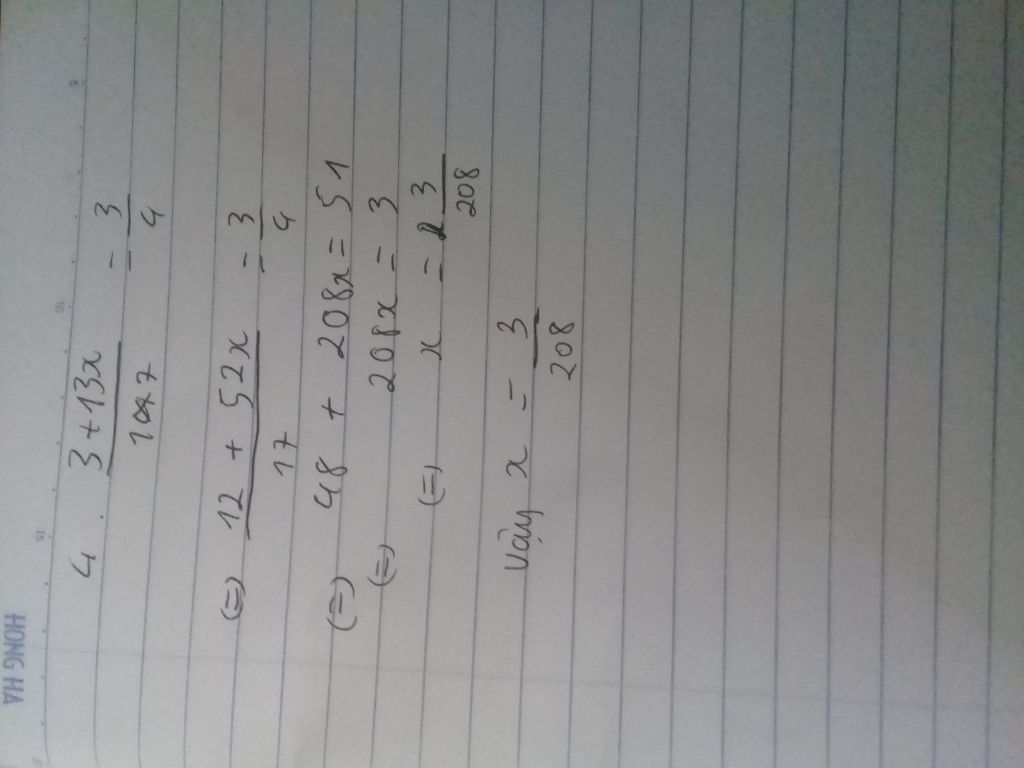 HONG HA
4 . \frac{3+13x}{17} = \frac{3}{4}
(=) \frac{12 + 52x}{17} = \frac{3}{4}
(=) 48 + 208x = 51
(=) 208x = 3
(=) x = \frac{3}{208}
Vậy x = \frac{3}{208}